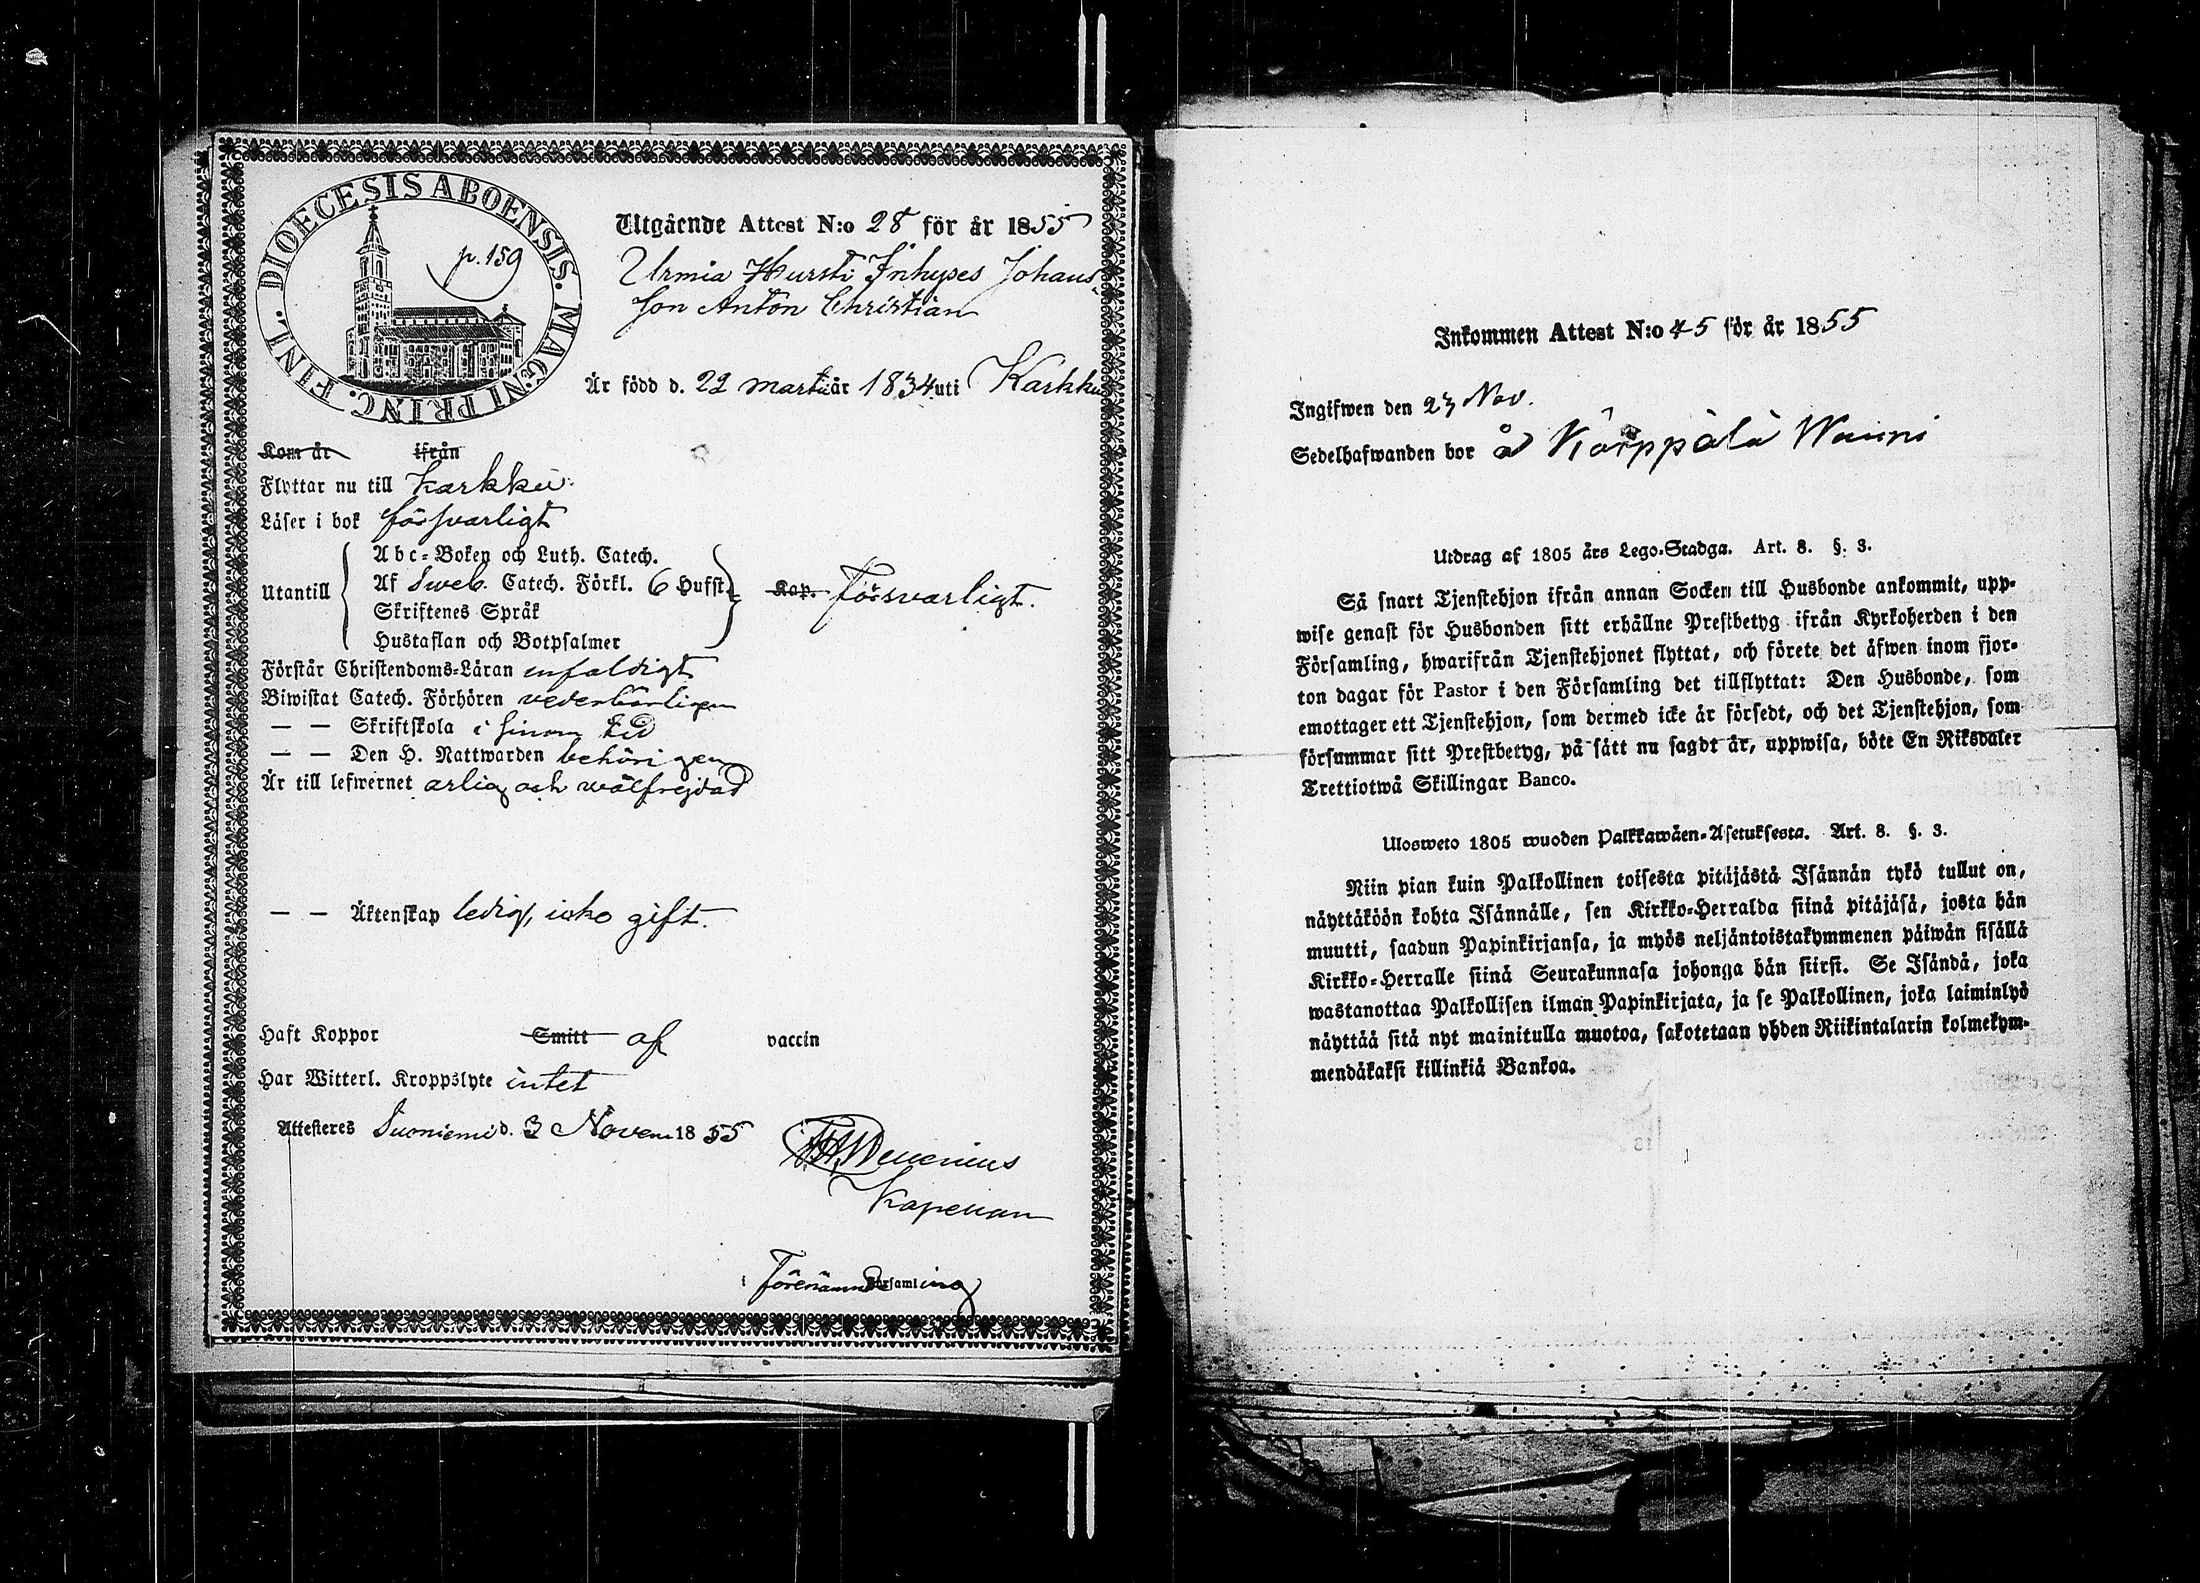 DIOECESIS ABOENSIS. MAGNI PRINC. FINL.
p. 159
Utgående Attest N:o 28 för år 1855
Urmia Hursti Inhyses Johans
son Anton Christian
Är född d. 22 marti år 1834 uti Karkku
Kom år ifrån
Flyttar nu till Karkku
Läser i bok försvarligt
Utantill
Abc-Boken och Luth. Catech.
Af Sweb. Catech. Förkl. 6 Hufst.
Skriftenes Språk
Hustaflan och Botpsalmer
Kap. Försvarligt.
Förstår Christendoms-Läran enfaldigt
Biwistat Catech. Förhören vederbörligen
— — Skriftskola i sinom tid
— — Den H. Nattwarden behörigen
Är till lefwernet ärlig och wälfrejdad
— — Äktenskap ledig, icke gift.
Haft Koppor Smitt af vaccin
Har Witterl. Kroppslyte intet
Attesteres Suoniemi d. 3 Novem 1855
Kapellan
i förenämnde Församling
Inkommen Attest N:o 45 för år 1855
Ingifwen den 23 Nov.
Sedelhafwanden bor å Körppälä Wanni
Utdrag af 1805 års Lego-Stadga. Art. 8. §. 3.
Så snart Tjenstehjon ifrån annan Socken till Husbonde ankommit, upp-
wise genast för Husbonden sitt erhållne Prestbetyg ifrån Kyrkoherden i den
Församling, hwarifrån Tjenstehjonet flyttat, och förete det äfwen inom fjor-
ton dagar för Pastor i den Församling det tillflyttat: Den Husbonde, som
emottager ett Tjenstehjon, som dermed icke är försedt, och det Tjenstehjon, som
försummar sitt Prestbetyg, på sätt nu sagdt är, uppwisa, böte En Riksdaler
Trettiotwå Skillingar Banco.
Ulosweto 1805 wuoden Palkkawäen-Asetuksesta. Art. 8. §. 3.
Niin pian kuin Palkollinen toisesta pitäjästä Isännän tykö tullut on,
näyttäköön kohta Isännälle, sen Kirkko-Herralda siinä pitäjäsä, josta hän
muutti, saadun Papinkirjansa, ja myös neljäntoistakymmenen päiwän sisällä
Kirkko-Herralle siinä Seurakunnasa johonga hän siirsi. Se Isändä, joka
wastanottaa Palkollisen ilman Papinkirjata, ja se Palkollinen, joka laiminlyö
näyttää sitä nyt mainitulla muotoa, sakotetaan yhden Riikintalarin kolmekym-
mendäkaksi killinkiä Bankoa.